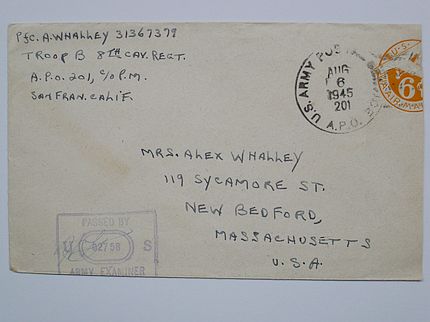 PFC. A. WHALLEY 31367379
TROOP B 8TH CAV. REGT.
A.P.O. 201, C/O P.M.
SAN FRAN. CALIF.
U.S. ARMY POSTAL
AUG
6
1945
201
A.P.O.
U.S.
6¢
AIR MAIL
MRS. ALEX WHALLEY
119 SYCAMORE ST.
NEW BEDFORD,
MASSACHUSETTS
U.S.A.
PASSED BY
U S
02758
ARMY EXAMINER